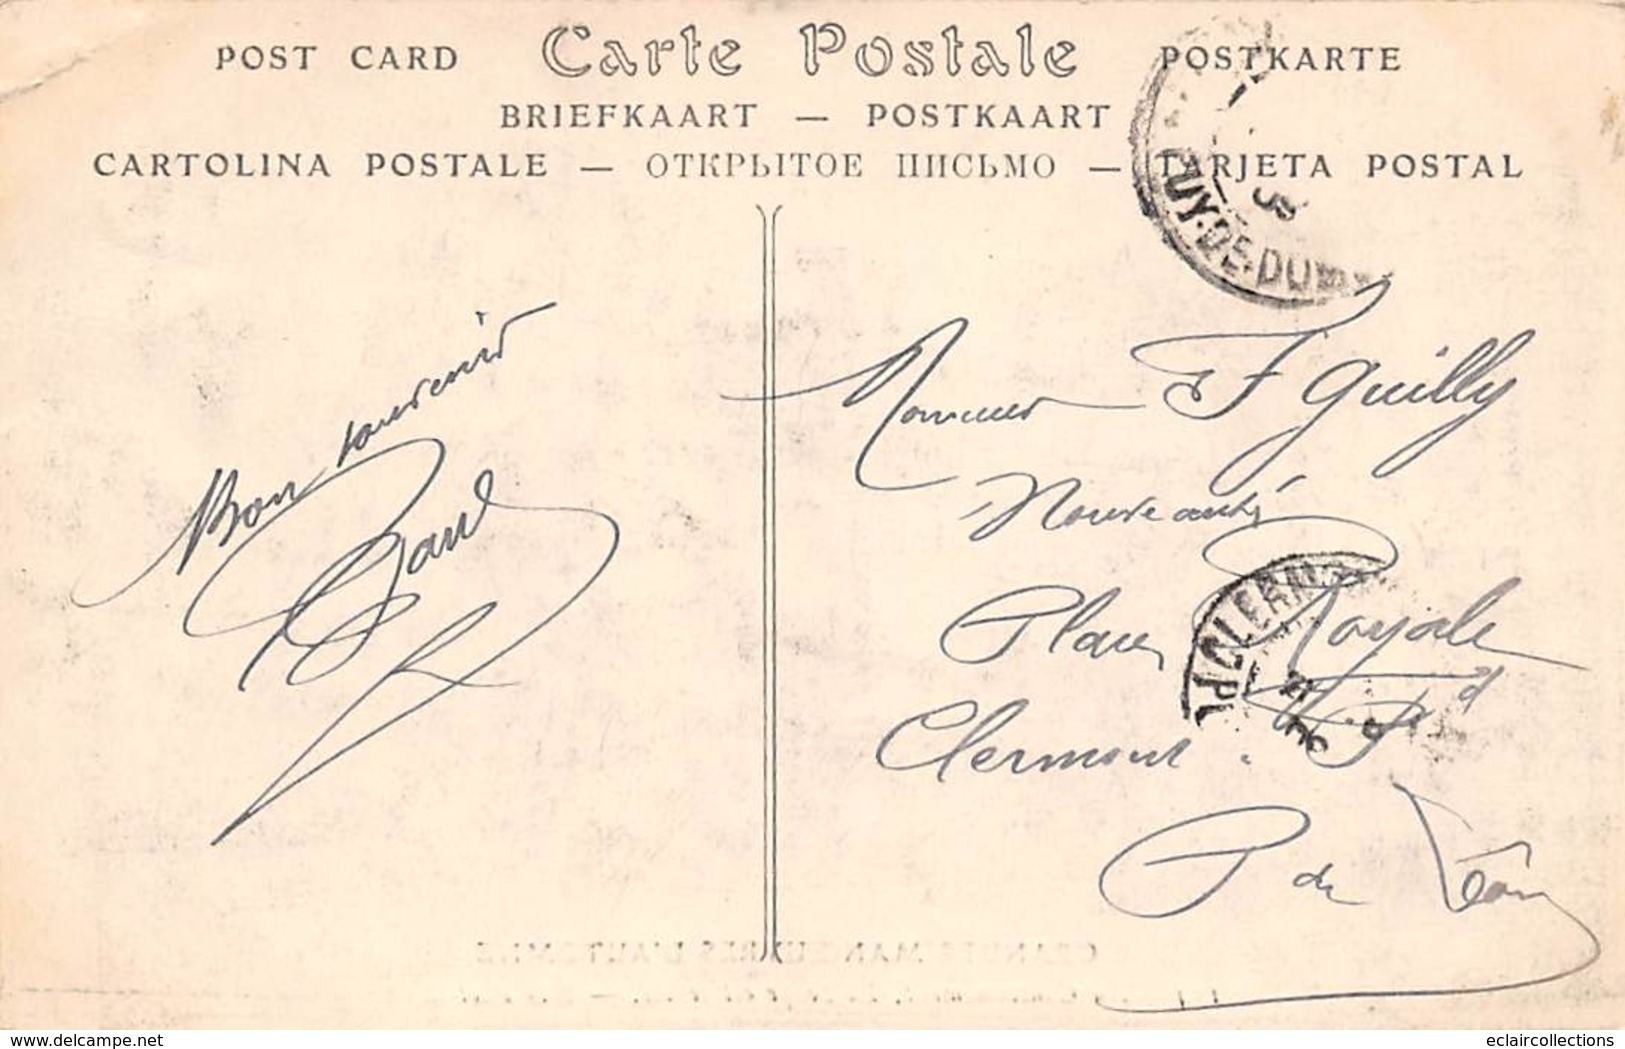 POST CARD Carte Postale POSTKARTE
BRIEFKAART — POSTKAART
CARTOLINA POSTALE — ОТКРЫТОЕ ПИСЬМО — TARJETA POSTAL
PUY-DE-DOME
Bon souvenir
Paul
Monsieur F Guilly
Nouveautés
Place Royale
CLERMONT
Clermont - Fd
P de Dôme
GRANDES MANŒUVRES D'AUTOMNE
www.delcampe.net
eclaircollections